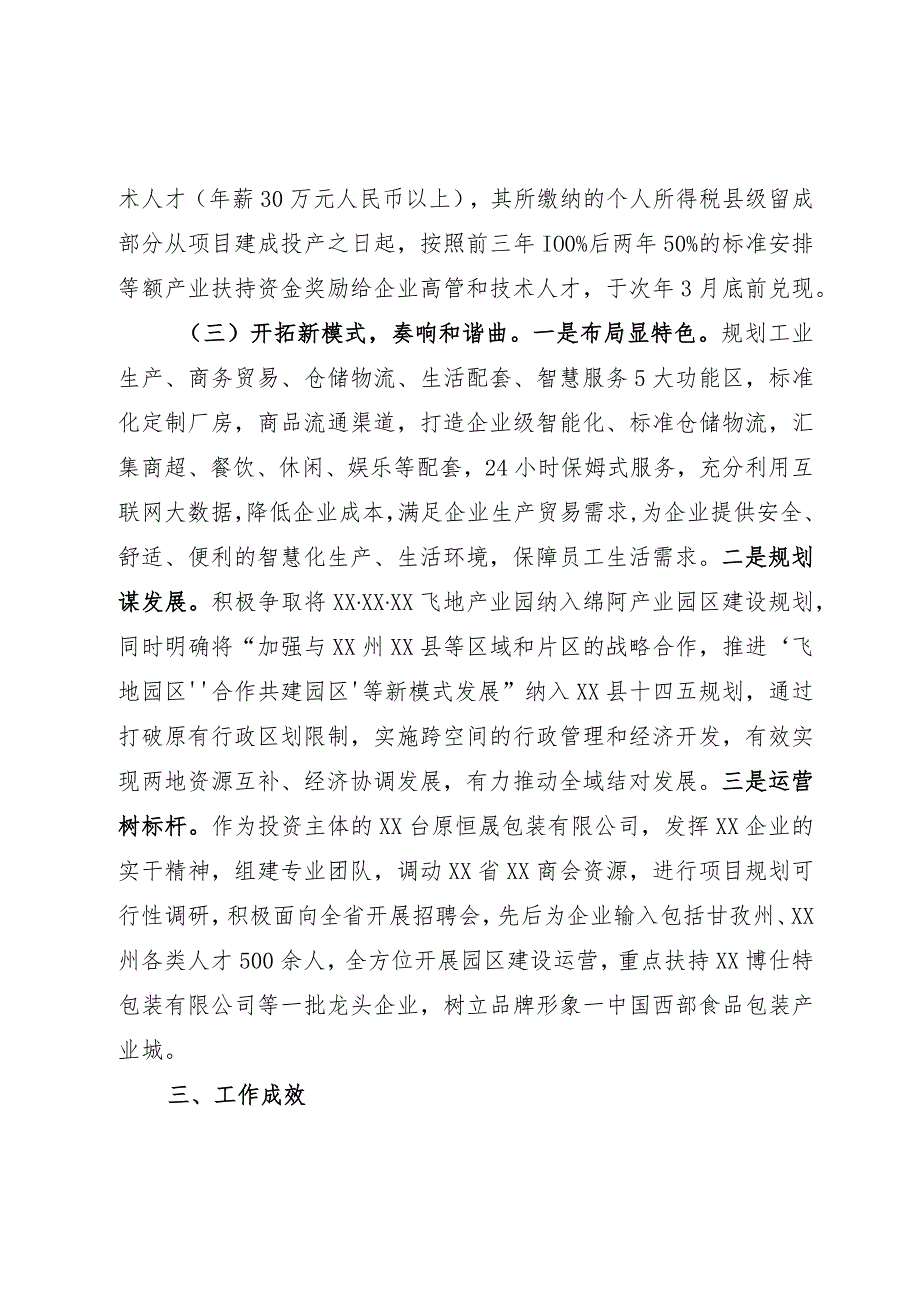 术人才（年薪30万元人民币以上），其所缴纳的个人所得税县级留成
部分从项目建成投产之日起，按照前三年IOO%后两年50%的标准安排
等额产业扶持资金奖励给企业高管和技术人才，于次年3月底前兑现。
（三）开拓新模式，奏响和谐曲。一是布局显特色。规划工业
生产、商务贸易、仓储物流、生活配套、智慧服务5大功能区，标准
化定制厂房，商品流通渠道，打造企业级智能化、标准仓储物流，汇
集商超、餐饮、休闲、娱乐等配套，24小时保姆式服务，充分利用互
联网大数据,降低企业成本,满足企业生产贸易需求,为企业提供安全、
舒适、便利的智慧化生产、生活环境，保障员工生活需求。二是规划
谋发展。积极争取将XX·XX·XX飞地产业园纳入绵阿产业园区建设规划，
同时明确将“加强与XX州XX县等区域和片区的战略合作，推进‘飞
地园区''合作共建园区'等新模式发展”纳入XX县十四五规划，通过
打破原有行政区划限制，实施跨空间的行政管理和经济开发，有效实
现两地资源互补、经济协调发展，有力推动全域结对发展。三是运营
树标杆。作为投资主体的XX台原恒晟包装有限公司，发挥XX企业的
实干精神，组建专业团队，调动XX省XX商会资源，进行项目规划可
行性调研，积极面向全省开展招聘会，先后为企业输入包括甘孜州、XX
州各类人才500余人，全方位开展园区建设运营，重点扶持XX博仕特
包装有限公司等一批龙头企业，树立品牌形象一中国西部食品包装产
业城。
三、工作成效